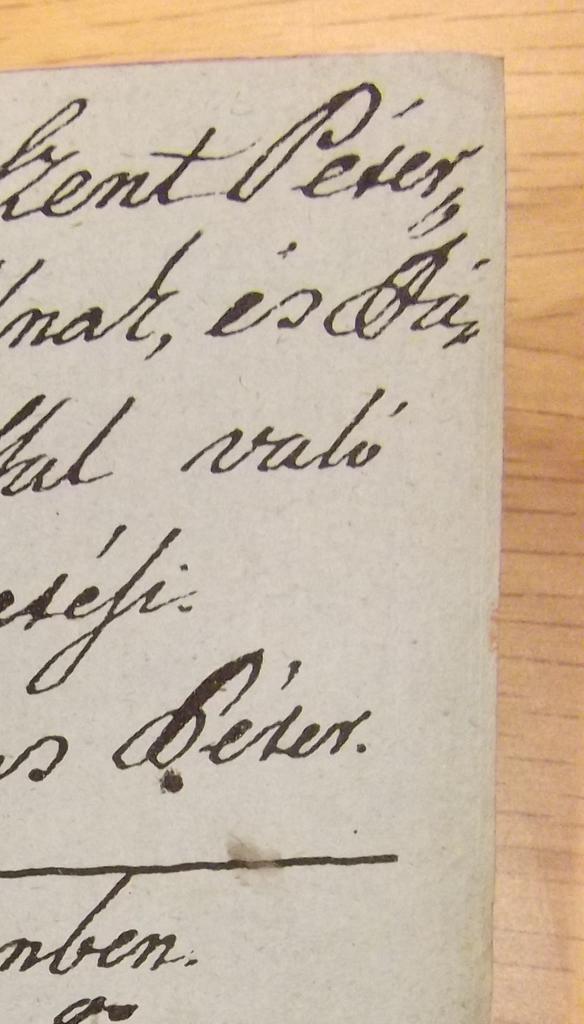 Szent Péter„
nak, és Fá„
tal való
etési.
s Péter.
nben.